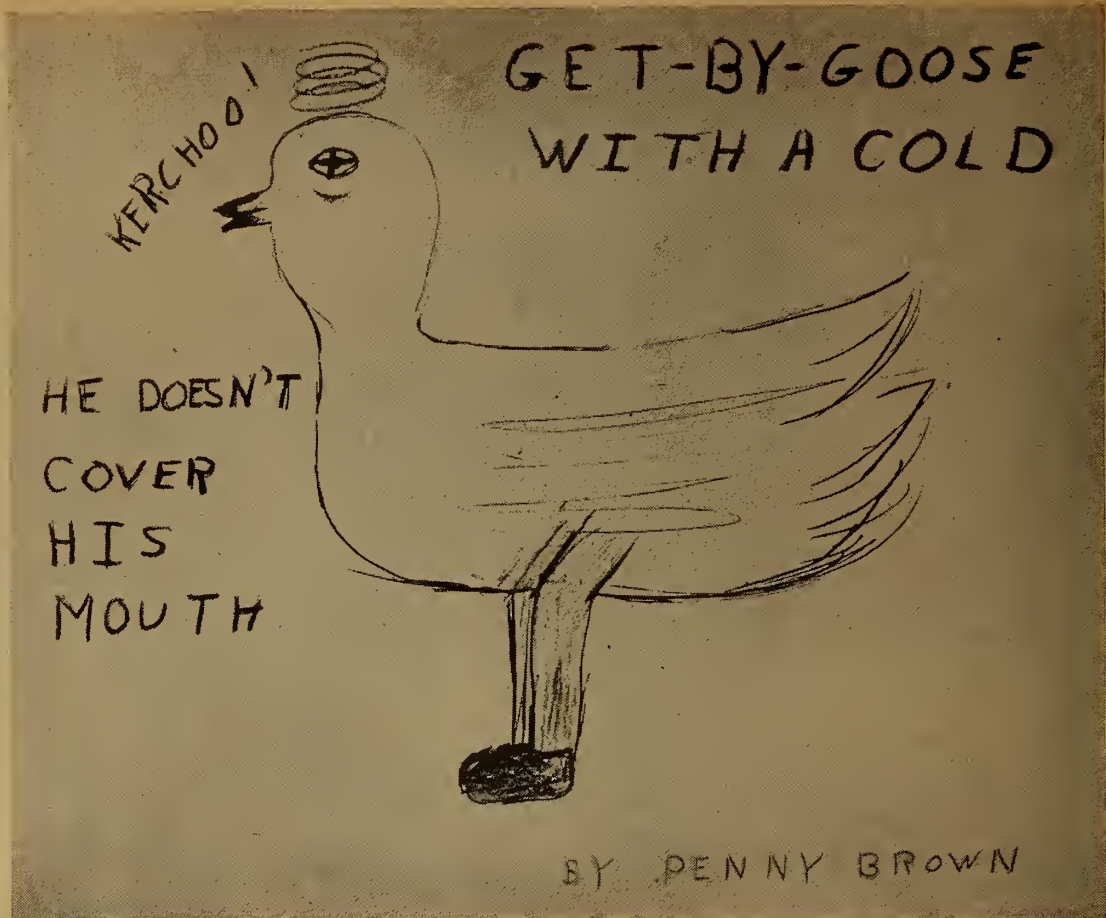 GET-BY-GOOSE
WITH A COLD
KERCHOO!
HE DOESN'T
COVER
HIS
MOUTH
BY PENNY BROWN